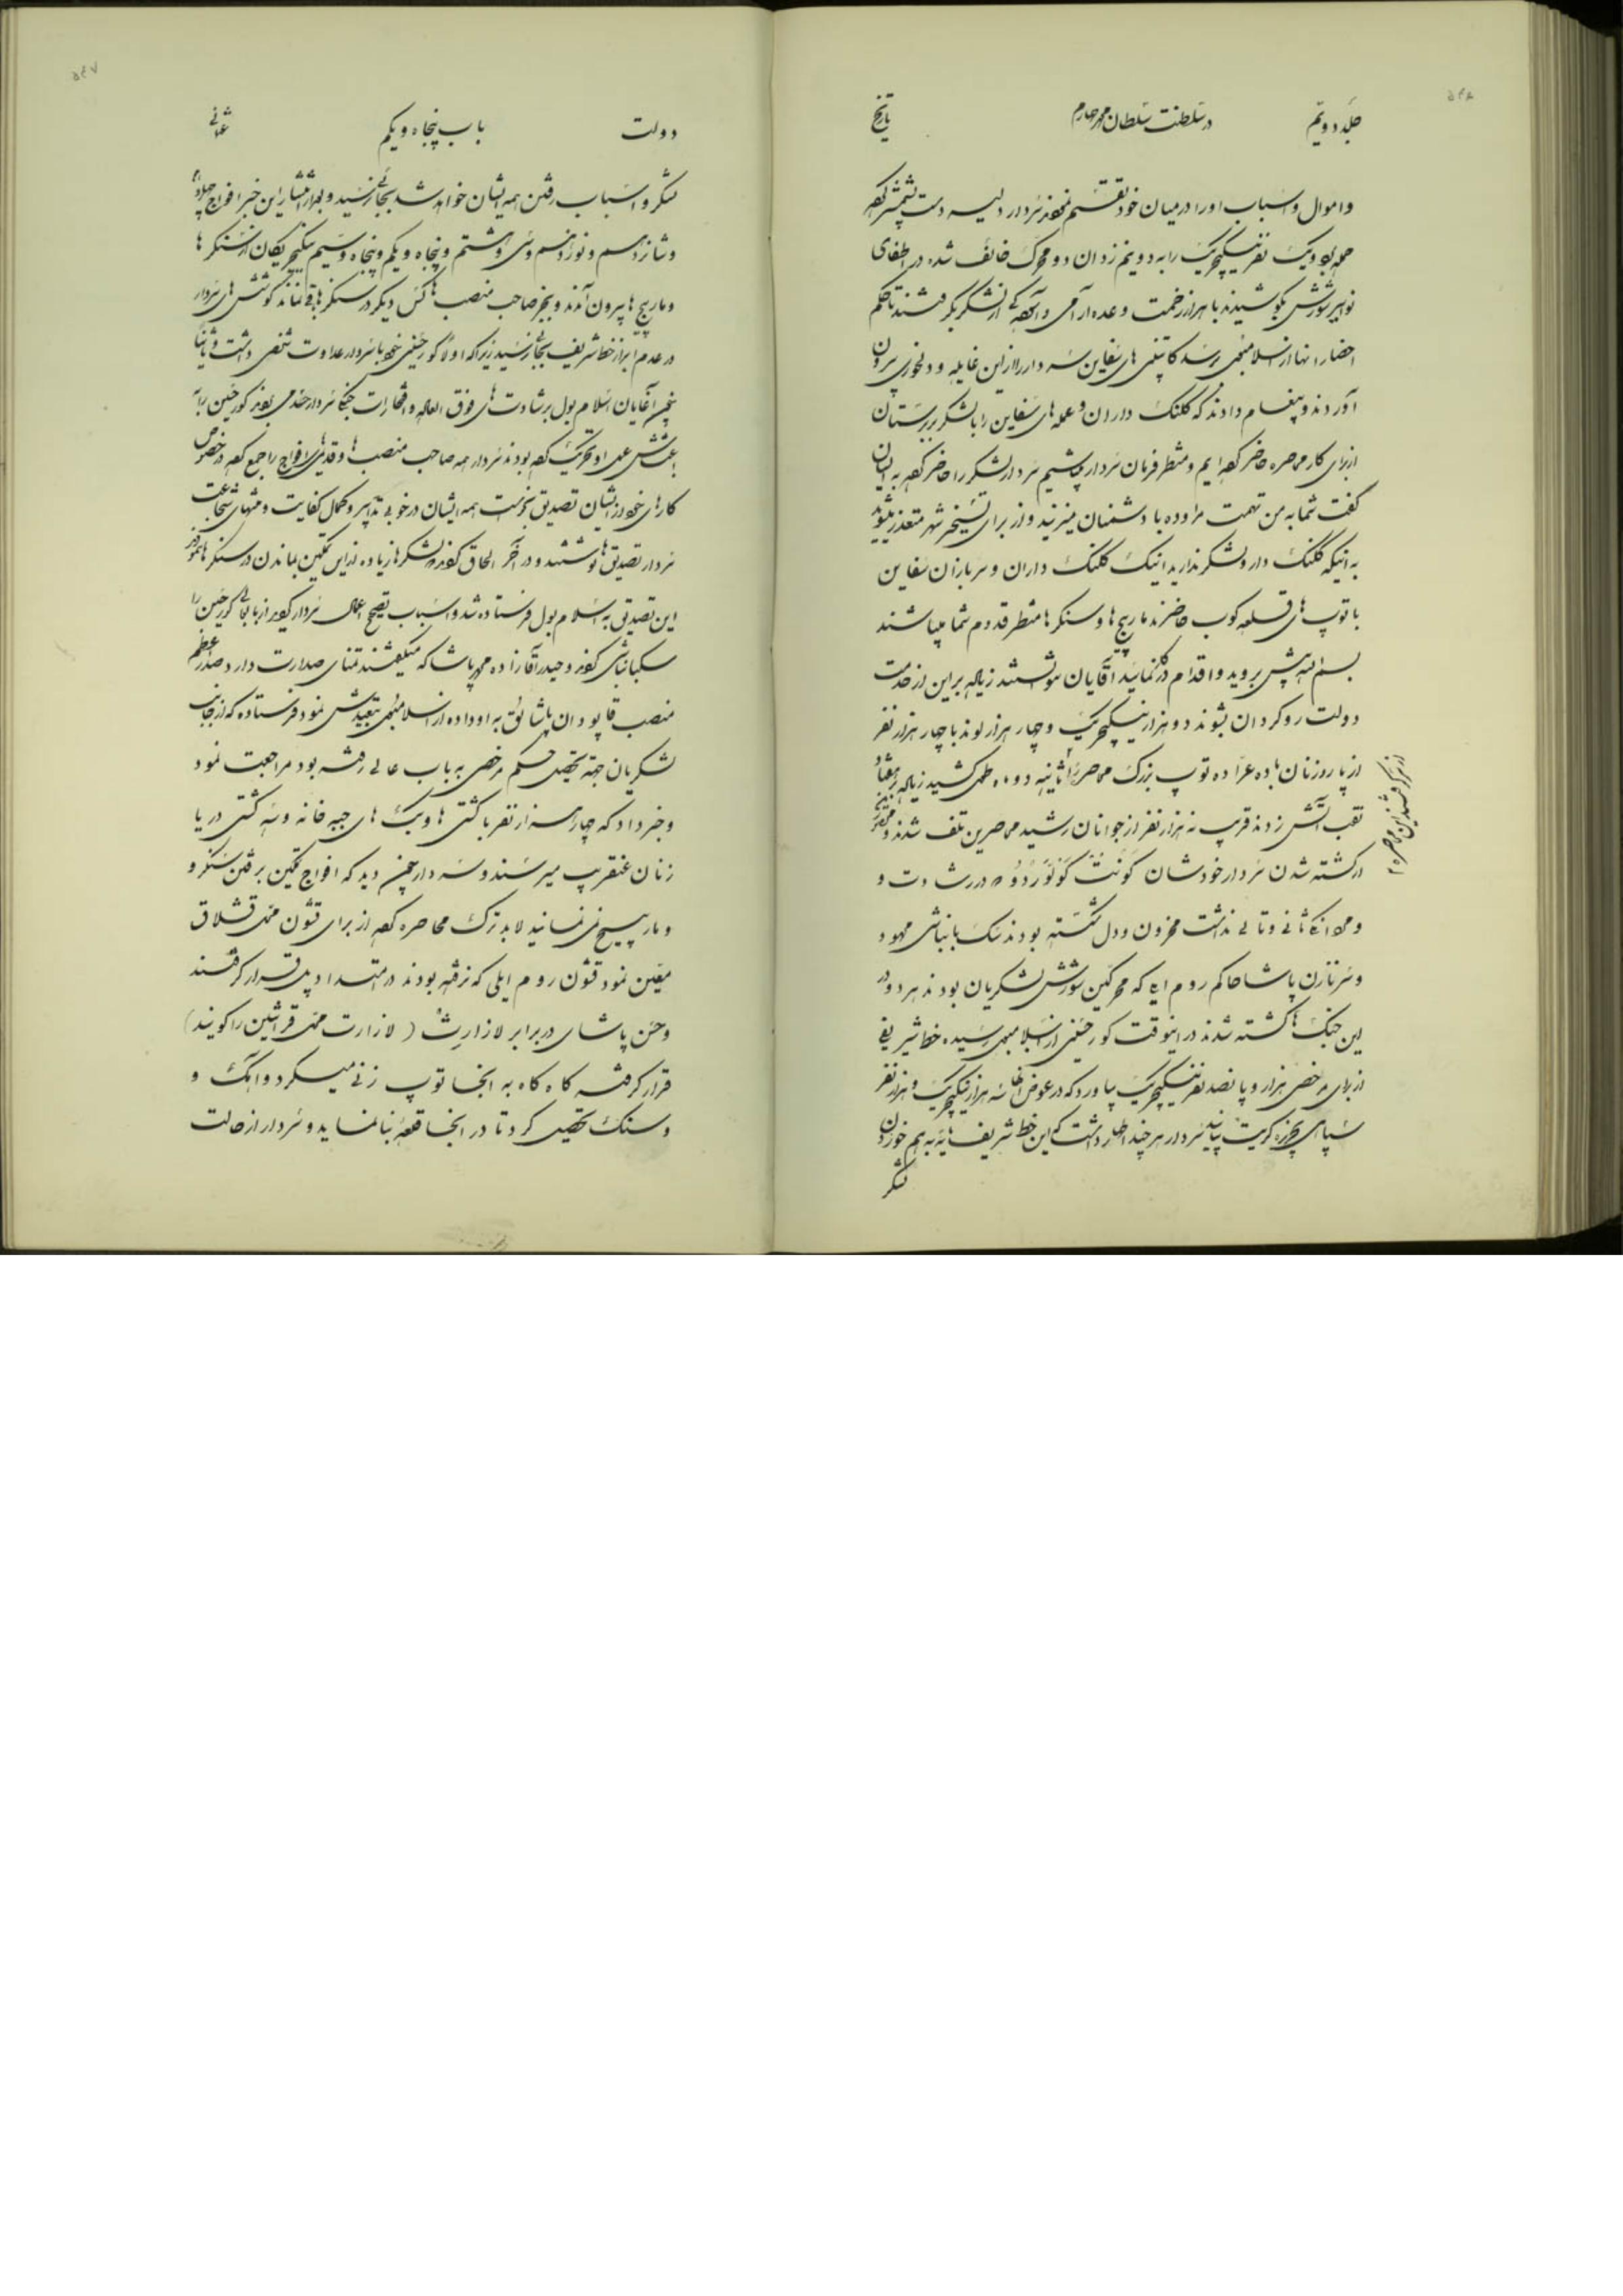 جلد دویّم
در سلطنت سلطان محمد چهارم
تاریخ
و اموال و اسباب او را در میان خود تقسیم نمودند سردار دلیر دست بشمشیر کرده
حمله بود و یک نفر ینگیچریک را به دو نیم زد آن دو محرک خائف شده در اطفای
نوایر شورش بکوشیدند با هزار زحمت و وعده آرامی و از لشکر بگرفتند تا حکم
احضار آنها از اسلامبول برسد کاپیتنی های سفاین سردار را از این غایله و دلخوری بیرون
آوردند و پیغام دادند که کلنگ داران و عمله های سفاین را با لشکر
از برای کار محاصره حاضر کرده ایم و منتظر فرمان سردار میباشیم سردار لشکر را حاضر کرده به ایشان
گفت شما به من تهمت مراوده با دشمنان میزنید و از برای تسخیر شهر متعذر میشوید
به اینکه کلنگ دار و لشکر ندارید اینک کلنگ داران و سربازان سفاین
با توپ های قلعه کوب حاضرند مارپیچ ها و سنکرها منتظر قدوم شما میباشند
بسم الله پیش بروید و اقدام در کار نمایید آقایان نتوانستند زیاده بر این از خدمت
دولت روگردان بشوند دو هزار ینگیچریک و چهار هزار لوند با چهار هزار نفر
از پاروزنان با ده عرّاده توپ بزرگ محاصره ثانیه دو ماه طول کشید زیاده بر هفتاد
نقب آتش زدند قریب نه هزار نفر از جوانان رشید محاصرین تلف شدند و
از کشته شدن سردار خودشان کونت کولوردو که در رشادت و
و مردانگی ثانی و تالی نداشت محزون و دل شکسته بودند سک بانباشی محمود
و سرنازن پاشا حاکم روم ایلی که محرکین شورش لشکریان بودند هر دو در
این جنگ ها کشته شدند در اینوقت کور حسینی از اسلامبول رسیده خط شریفی
از برای مرخصی هزار و پانصد نفر ینگیچریک بیاورد که در عوض آنها سه هزار ینگیچریک و هزار نفر
سپاهی بجزیره کریت بیایند سردار هر چند اظهار داشت که این خط شریف مایه بهم خوردن
لشکر
دولت
باب پنجاه و یکم
عثمانی
لشکر و اسباب رفتن همه ایشان خواهد شد بجائی نرسید و بعد از انتشار این خبر افواج چهارم
و شانزدهم و نوزدهم و سی و هشتم و پنجاه و یکم و پنجاه و سیم ینگیچریکان از سنکر ها
و مارپیچ ها بیرون آمدند و بجز صاحب منصب ها کس دیگر در سنکرها باقی نماند کوشش های سردار
در عدم ابراز خط شریف بجائی نرسید زیرا که اولاً کور حسینی خود با سردار عداوت شخصی داشت و ثانیاً
آقایان اسلامبول بر شادت های فوق العاده و افتخارات جنگی سردار کور حسین را
بودند سردار همه صاحب منصب ها و قدیمی های افواج را جمع کرده در خصوص
کارهای خود از ایشان تصدیق بخواست همه ایشان در خوبی تدابیر و کمال کفایت و منتهای شجاعت
سردار تصدیق ها نوشتند و در آخر الحاق کردند لشکرها زیاده از این تمکین بماندن در سنکرها
این تصدیق به اسلامبول فرستاده شد و اسباب تصحیح اعمال سردار گردید از باب عالی کور حسین را
سکبانباشی کردند و حیدر آقا زاده محمد پاشا که میگفتند تمنای صدارت دارد صدر اعظم
منصب قاپودان پاشائی به او داده از اسلامبول تبعیدش نمود فرستاده که از جانب
لشکریان جهة تحصیل حکم مرخصی به باب عالی رفته بود مراجعت نمود
و خبر داد که چهار هزار نفر با کشتی ها و بیک های جبه خانه و سه کشتی دریا
زنان عنقریب میرسند و سردار چون دید که افواج تمکین برفتن سنکر و
و مارپیچ نمی نمایند لابد ترک محاصره کرده از برای قشون محل قشلاق
معیّن نمود قشون روم ایلی که نرفته بودند در امتداد یلی قرار گرفتند
و حسن پاشا در برابر لازارت ( لازارت محل قرانتین را کویند)
قرار گرفته کاه کاه به آنجا توپ زنی میکرد و آهک و
و سنگ تحصیل کرد تا در آنجا قلعهٔ بنا نماید و سردار از حالت